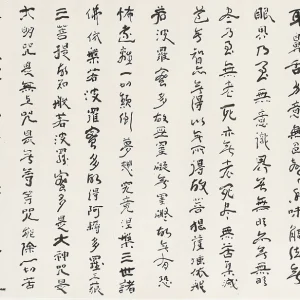 耳鼻舌身意無色聲香味觸法無
眼界乃至無意識界無無明亦無無明
盡乃至無老死亦無老死盡無苦集滅
道無智亦無得以無所得故菩提薩埵依般
若波羅蜜多故心無罣礙無罣礙故無有恐
怖遠離一切顛倒夢想究竟涅槃三世諸
佛依般若波羅蜜多故得阿耨多羅三藐
三菩提故知般若波羅蜜多是大神咒是
大明咒是無上咒是無等等咒能除一切苦